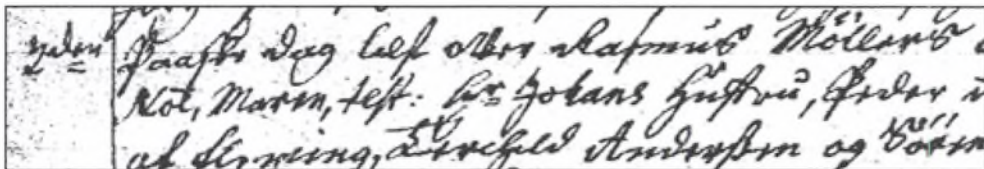 2den Paaske dag læst over Rasmus Möllers
Nöl, Maren, test: Hr Johans Hustru, Peder
af Fleruing, Terchild Andersen og Sören